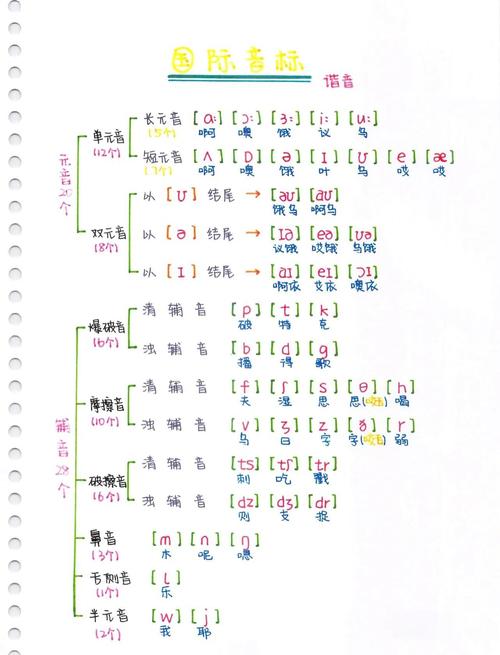 国际音标
谐音
元音20个
单元音 (12个)
长元音 (5个) [ɑː] [ɔː] [ɜː] [iː] [uː]
啊 噢 饿 议 乌
短元音 (7个) [ʌ] [ɒ] [ə] [ɪ] [ʊ] [e] [æ]
啊 噢 饿 叶 乌 哎 哎
双元音 (8个)
以 [ʊ] 结尾 → [əʊ] [aʊ]
饿乌 啊乌
以 [ə] 结尾 → [ɪə] [eə] [ʊə]
议饿 哎饿 乌饿
以 [ɪ] 结尾 → [aɪ] [eɪ] [ɔɪ]
啊依 艾依 噢依
辅音28个
爆破音 (6个)
清辅音 [p] [t] [k]
破 特 克
浊辅音 [b] [d] [g]
播 得 歌
摩擦音 (10个)
清辅音 [f] [ʃ] [s] [θ] [h]
夫 湿 思 思(咬舌) 喝
浊辅音 [v] [ʒ] [z] [ð] [r]
乌 日 字 字(咬舌) 弱
破擦音 (6个)
清辅音 [ts] [tʃ] [tr]
刺 吃 戳
浊辅音 [dz] [dʒ] [dr]
则 支 捉
鼻音 (3个) [m] [n] [ŋ]
木 呢 嗯
舌侧音 (1个) [l]
乐
半元音 (2个) [w] [j]
我 耶